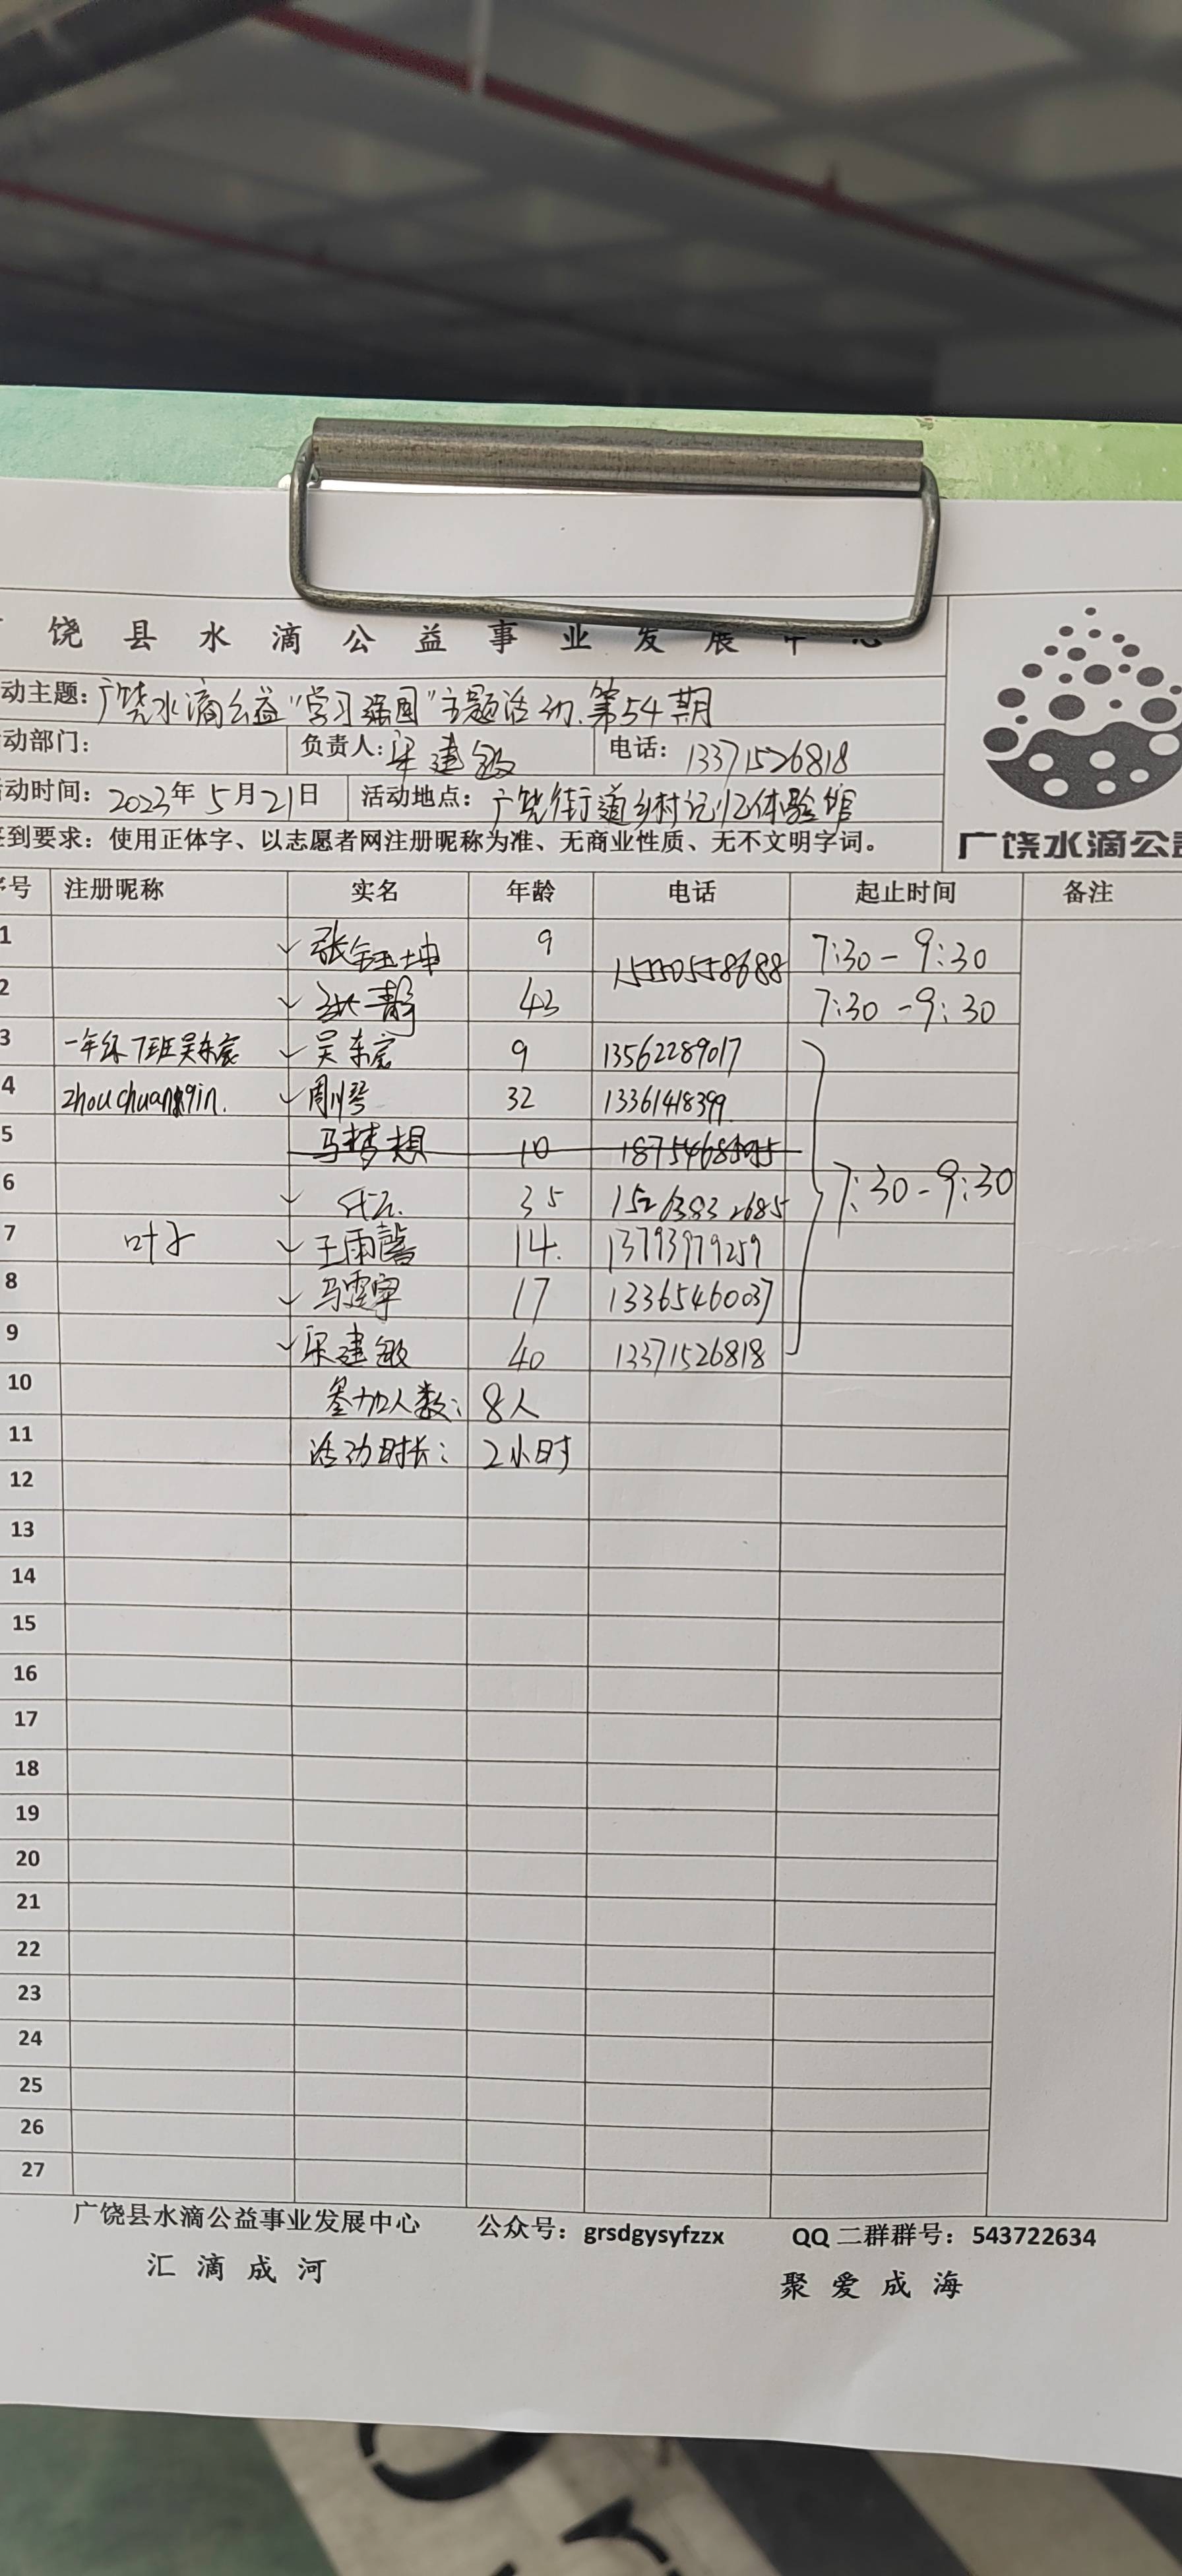 饶县水滴公益事业发展中心
动主题：广饶水滴公益“学习强国”主题活动.第54期
动部门： 负责人：宋建敏 电话：13371526818
动时间：2023年5月21日 活动地点：广饶街道乡村记忆体验馆
到要求：使用正体字、以志愿者网注册昵称为准、无商业性质、无不文明字词。
广饶水滴公益
序号 注册昵称 实名 年龄 电话 起止时间 备注
1 张钰坤 9 15550558688 7:30-9:30
2 静 43 7:30-9:30
3 一年级7班吴东宸 吴东宸 9 13562289017
4 zhouchuanqin. 周川琴 32 13361418399
5 马梦想 10
6 35 15263832685 7:30-9:30
7 叶子 王雨馨 14. 13793979259
8 马霆宇 17 13365460037
9 宋建敏 40 13371526818
10 参加人数：8人
11 活动时长：2小时
12
13
14
15
16
17
18
19
20
21
22
23
24
25
26
27
广饶县水滴公益事业发展中心 公众号：grsdgysyfzzx QQ二群群号：543722634
汇滴成河 聚爱成海